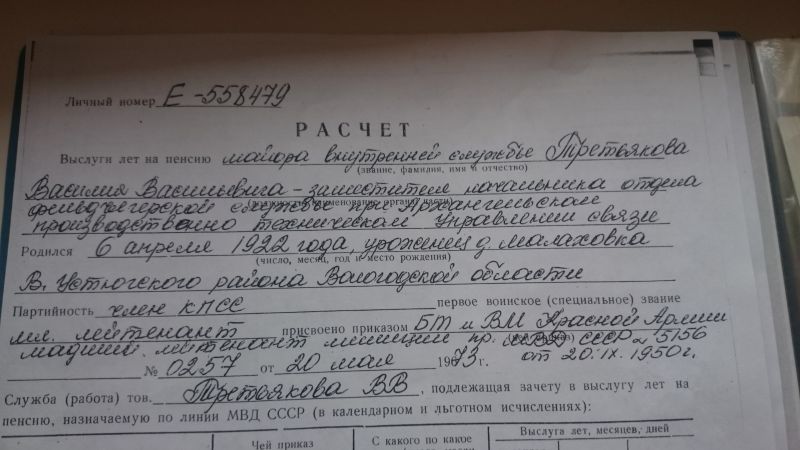 Личный номер Е-558479
РАСЧЕТ
Выслуги лет на пенсию майора внутренней службы Третьякова
(звание, фамилия, имя и отчество)
Василия Васильевича - заместителя начальника отдела
фельдъегерской службы при Архангельском
производственно техническом Управлении связи
Родился 6 апреля 1922 года, уроженец д. Малаховка
(число, месяц, год и место рождения)
В. Устюгского района Вологодской области
Партийность член КПСС первое воинское (специальное) звание
мл. лейтенант присвоено приказом БТ и ВМ Красной Армии
младший лейтенант милиции пр. СССР 5156
№ 0257 от 20 мая 1943 г. от 20.IX.1950 г.
Служба (работа) тов. Третьякова ВВ, подлежащая зачету в выслугу лет на
пенсию, назначаемую по линии МВД СССР (в календарном и льготном исчислениях):
Чей приказ
С какого по какое
Выслуга лет, месяцев, дней